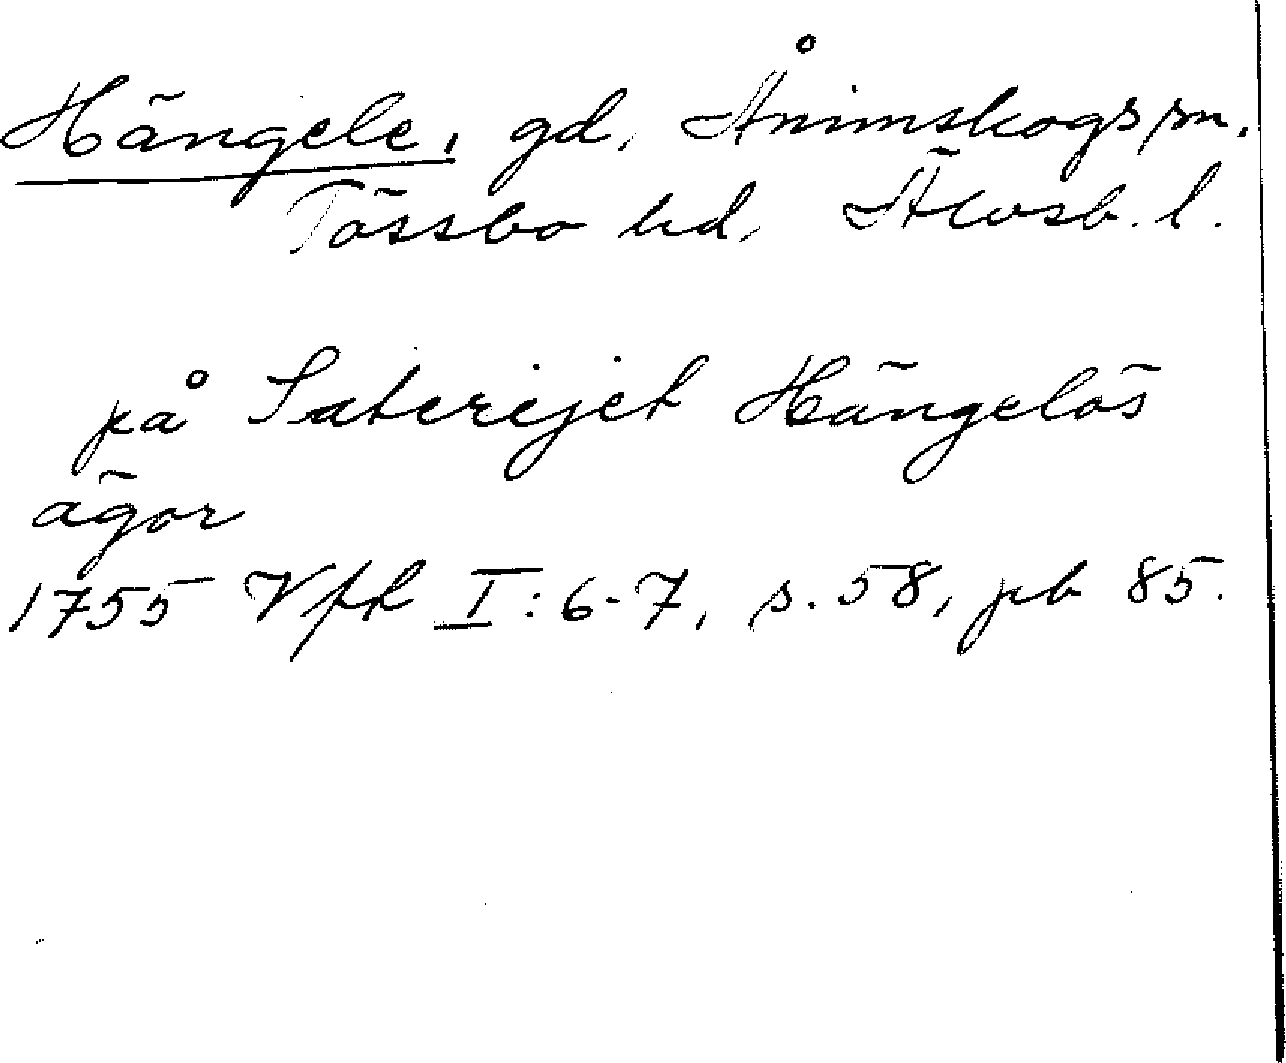 Hängele, gd, Ånimskogs sn.
Tössbo hd, Älvsb. l.
på Säterijet Hängelös
ägor
1755 Vfrk I: 6-7, s. 58, pb 85.